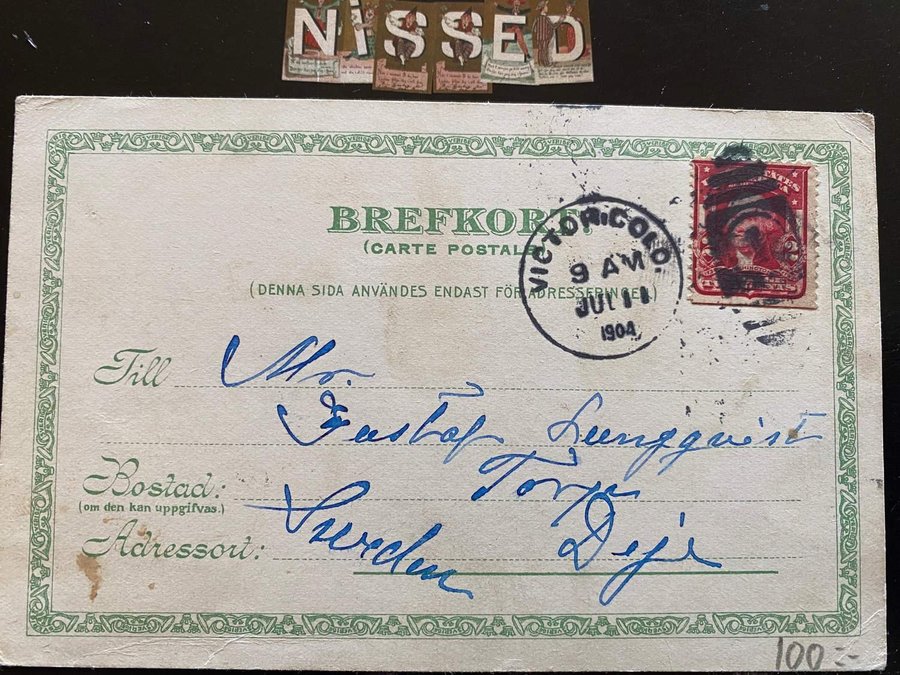 NiSSED
BREFKORT.
(CARTE POSTALE
(DENNA SIDA ANVÄNDES ENDAST FÖR ADRESSERINGEN.)
VICTOR, COLO.
9 AM
JUL 11
1904
Till Mr.
Gustaf Lungqvist
Bostad:
(om den kan uppgifvas.)
Adressort: Sverden Deje
100:-